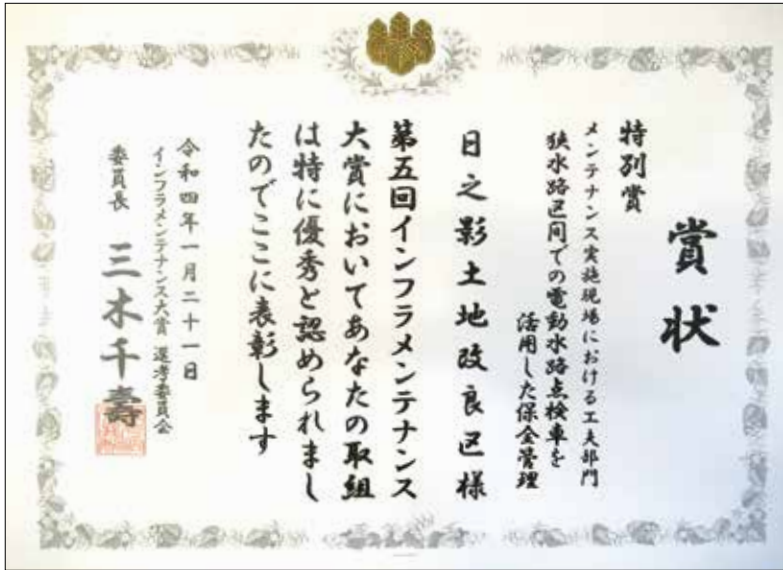 賞状
特別賞
メンテナンス実施現場における工夫部門
狭水路区間での電動水路点検車を
活用した保全管理
日之影土地改良区様
第五回インフラメンテナンス
大賞においてあなたの取組
は特に優秀と認められまし
たのでここに表彰します
令和四年一月二十一日
インフラメンテナンス大賞 選考委員会
委員長 三木千壽